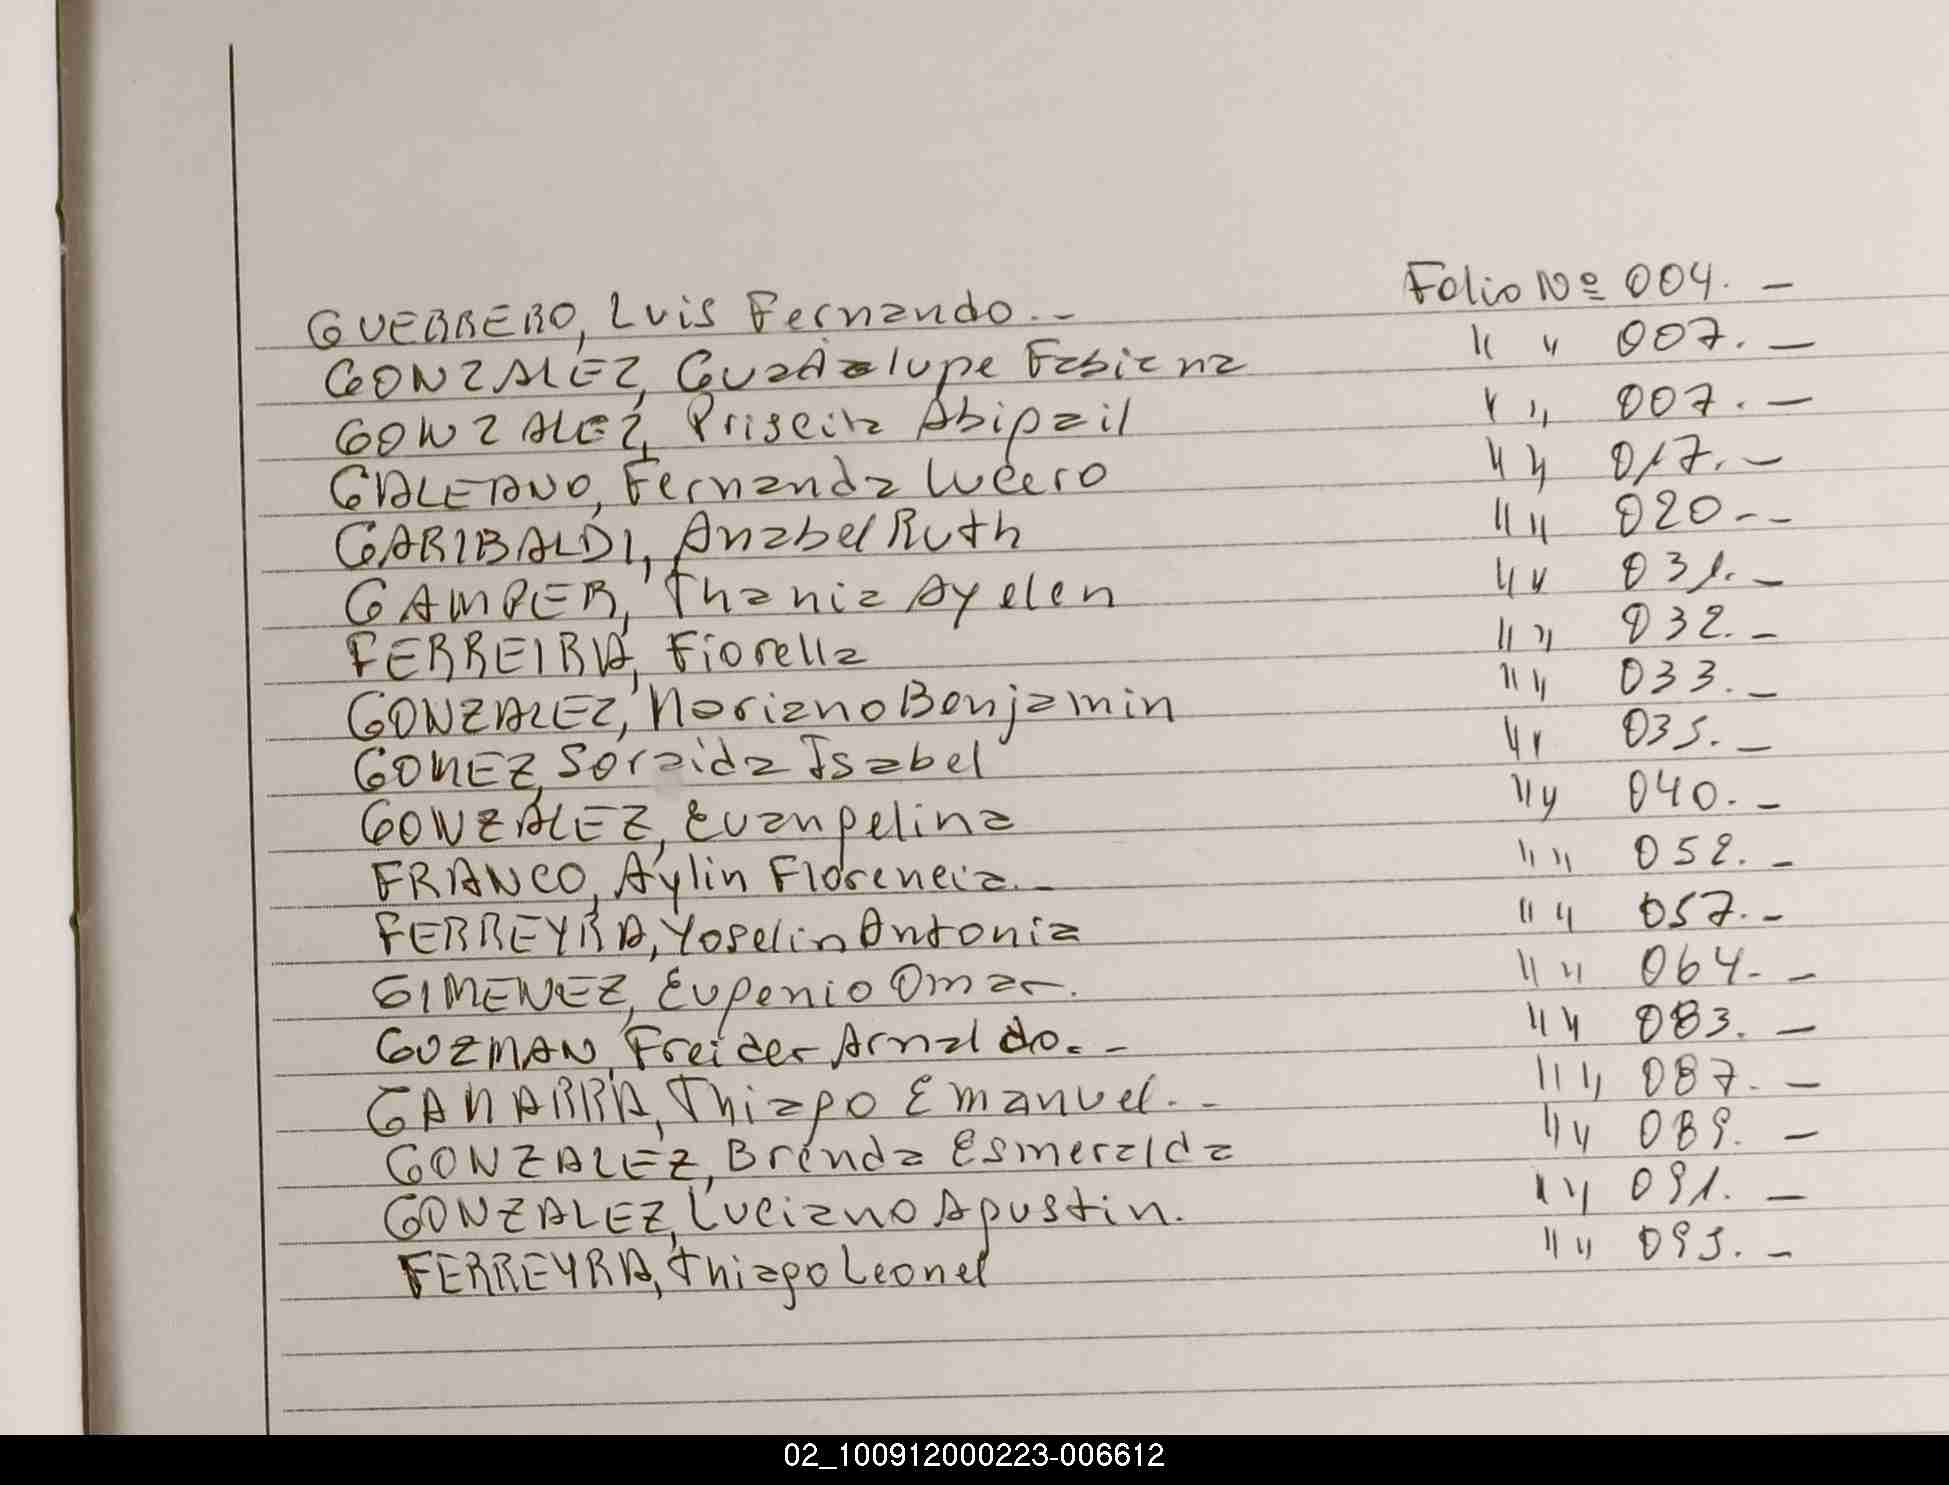 GUERRERO, Luis Fernando.- Folio Nº 004.-
GONZALEZ, Guadalupe Fabiana " " 007.-
GONZALEZ, Priscila Abigail " " 007.-
GALEANO, Fernanda Lucero " " 017.-
GARIBALDI, Anabel Ruth " " 020--
GAMPER, Thania Ayelen " " 031.-
FERREIRA, Fiorella " " 032.-
GONZALEZ, Mariano Benjamin " " 033.-
GOMEZ, Soraida Isabel " " 035.-
GONZALEZ, Evangelina " " 040.-
FRANCO, Aylin Florencia.- " " 052.-
FERREYRA, Yoselin Antonia " " 057.-
GIMENEZ, Eugenio Omar. " " 064.-
GUZMAN, Freider Arnaldo.- " " 083.-
GAMARRA, Thiago Emanuel.- " " 087.-
GONZALEZ, Brenda Esmeralda " " 089.-
GONZALEZ, Luciano Agustin. " " 091.-
FERREYRA, Thiago Leonel " " 093.-
02_100912000223-006612